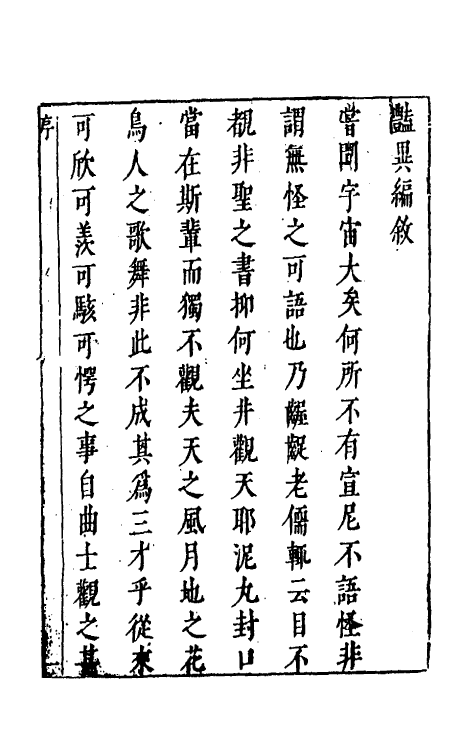 豔異編敘
嘗聞宇宙大矣何所不有宣尼不語怪非
謂無怪之可語也乃齷齪老儒輒云目不
覩非聖之書抑何坐井觀天耶泥丸封口
當在斯輩而獨不觀夫天之風月地之花
鳥人之歌舞非此不成其爲三才乎從來
可欣可羨可駭可愕之事自曲士觀之甚
序
一